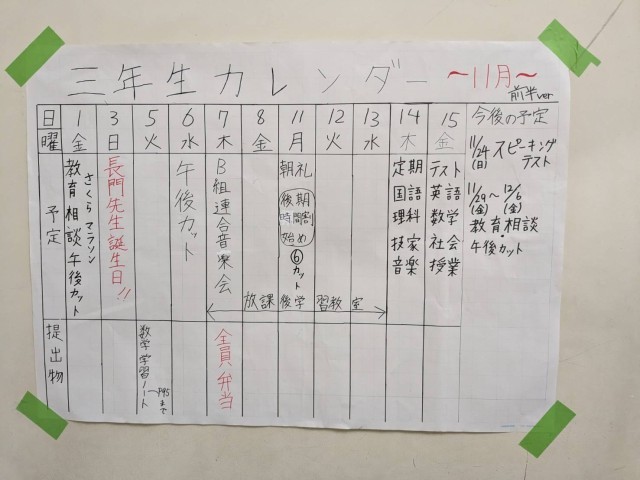 三年生カレンダー 〜11月〜
前半ver
日 1 3 5 6 7 8 11 12 13 14 15 今後の予定
曜 金 日 火 水 木 金 月 火 水 木 金
予定
さくらマラソン
教育相談午後カット
長門先生誕生日!!
午後カット
B組連合音楽会
朝礼
後期
時間割
始め
⑥カット
放課後学習教室
定期テスト
国語 英語
理科 数学
技家 社会
音楽 授業
11/24(日) スピーキング
テスト
11/29(金)〜12/6(金)
教育相談
・
午後カット
提出物
数学学習ノート
〜P95まで
全員弁当